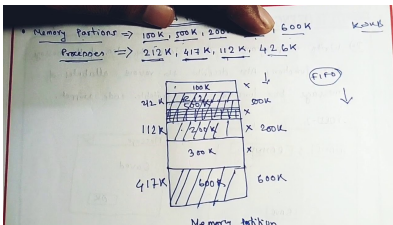 • Memory Partions => 100K, 500K, 200 , 600K
KWKB
Processes => 212K, 417K, 112K, 426K
100K x
FIFO
212K 500K 500K
x
112K 200K x 200K
300K x
417K 600K 600K
Memory partition